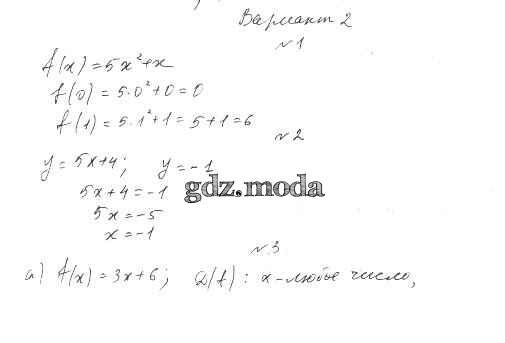 Вариант 2
№1
f(x) = 5x²+x
f(0) = 5·0²+0 = 0
f(1) = 5·1²+1 = 5+1 = 6
№2
y = 5x+4; y = -1
5x+4 = -1
gdz.moda
5x = -5
x = -1
№3
а) f(x) = 3x+6; D(f): x - любое число,